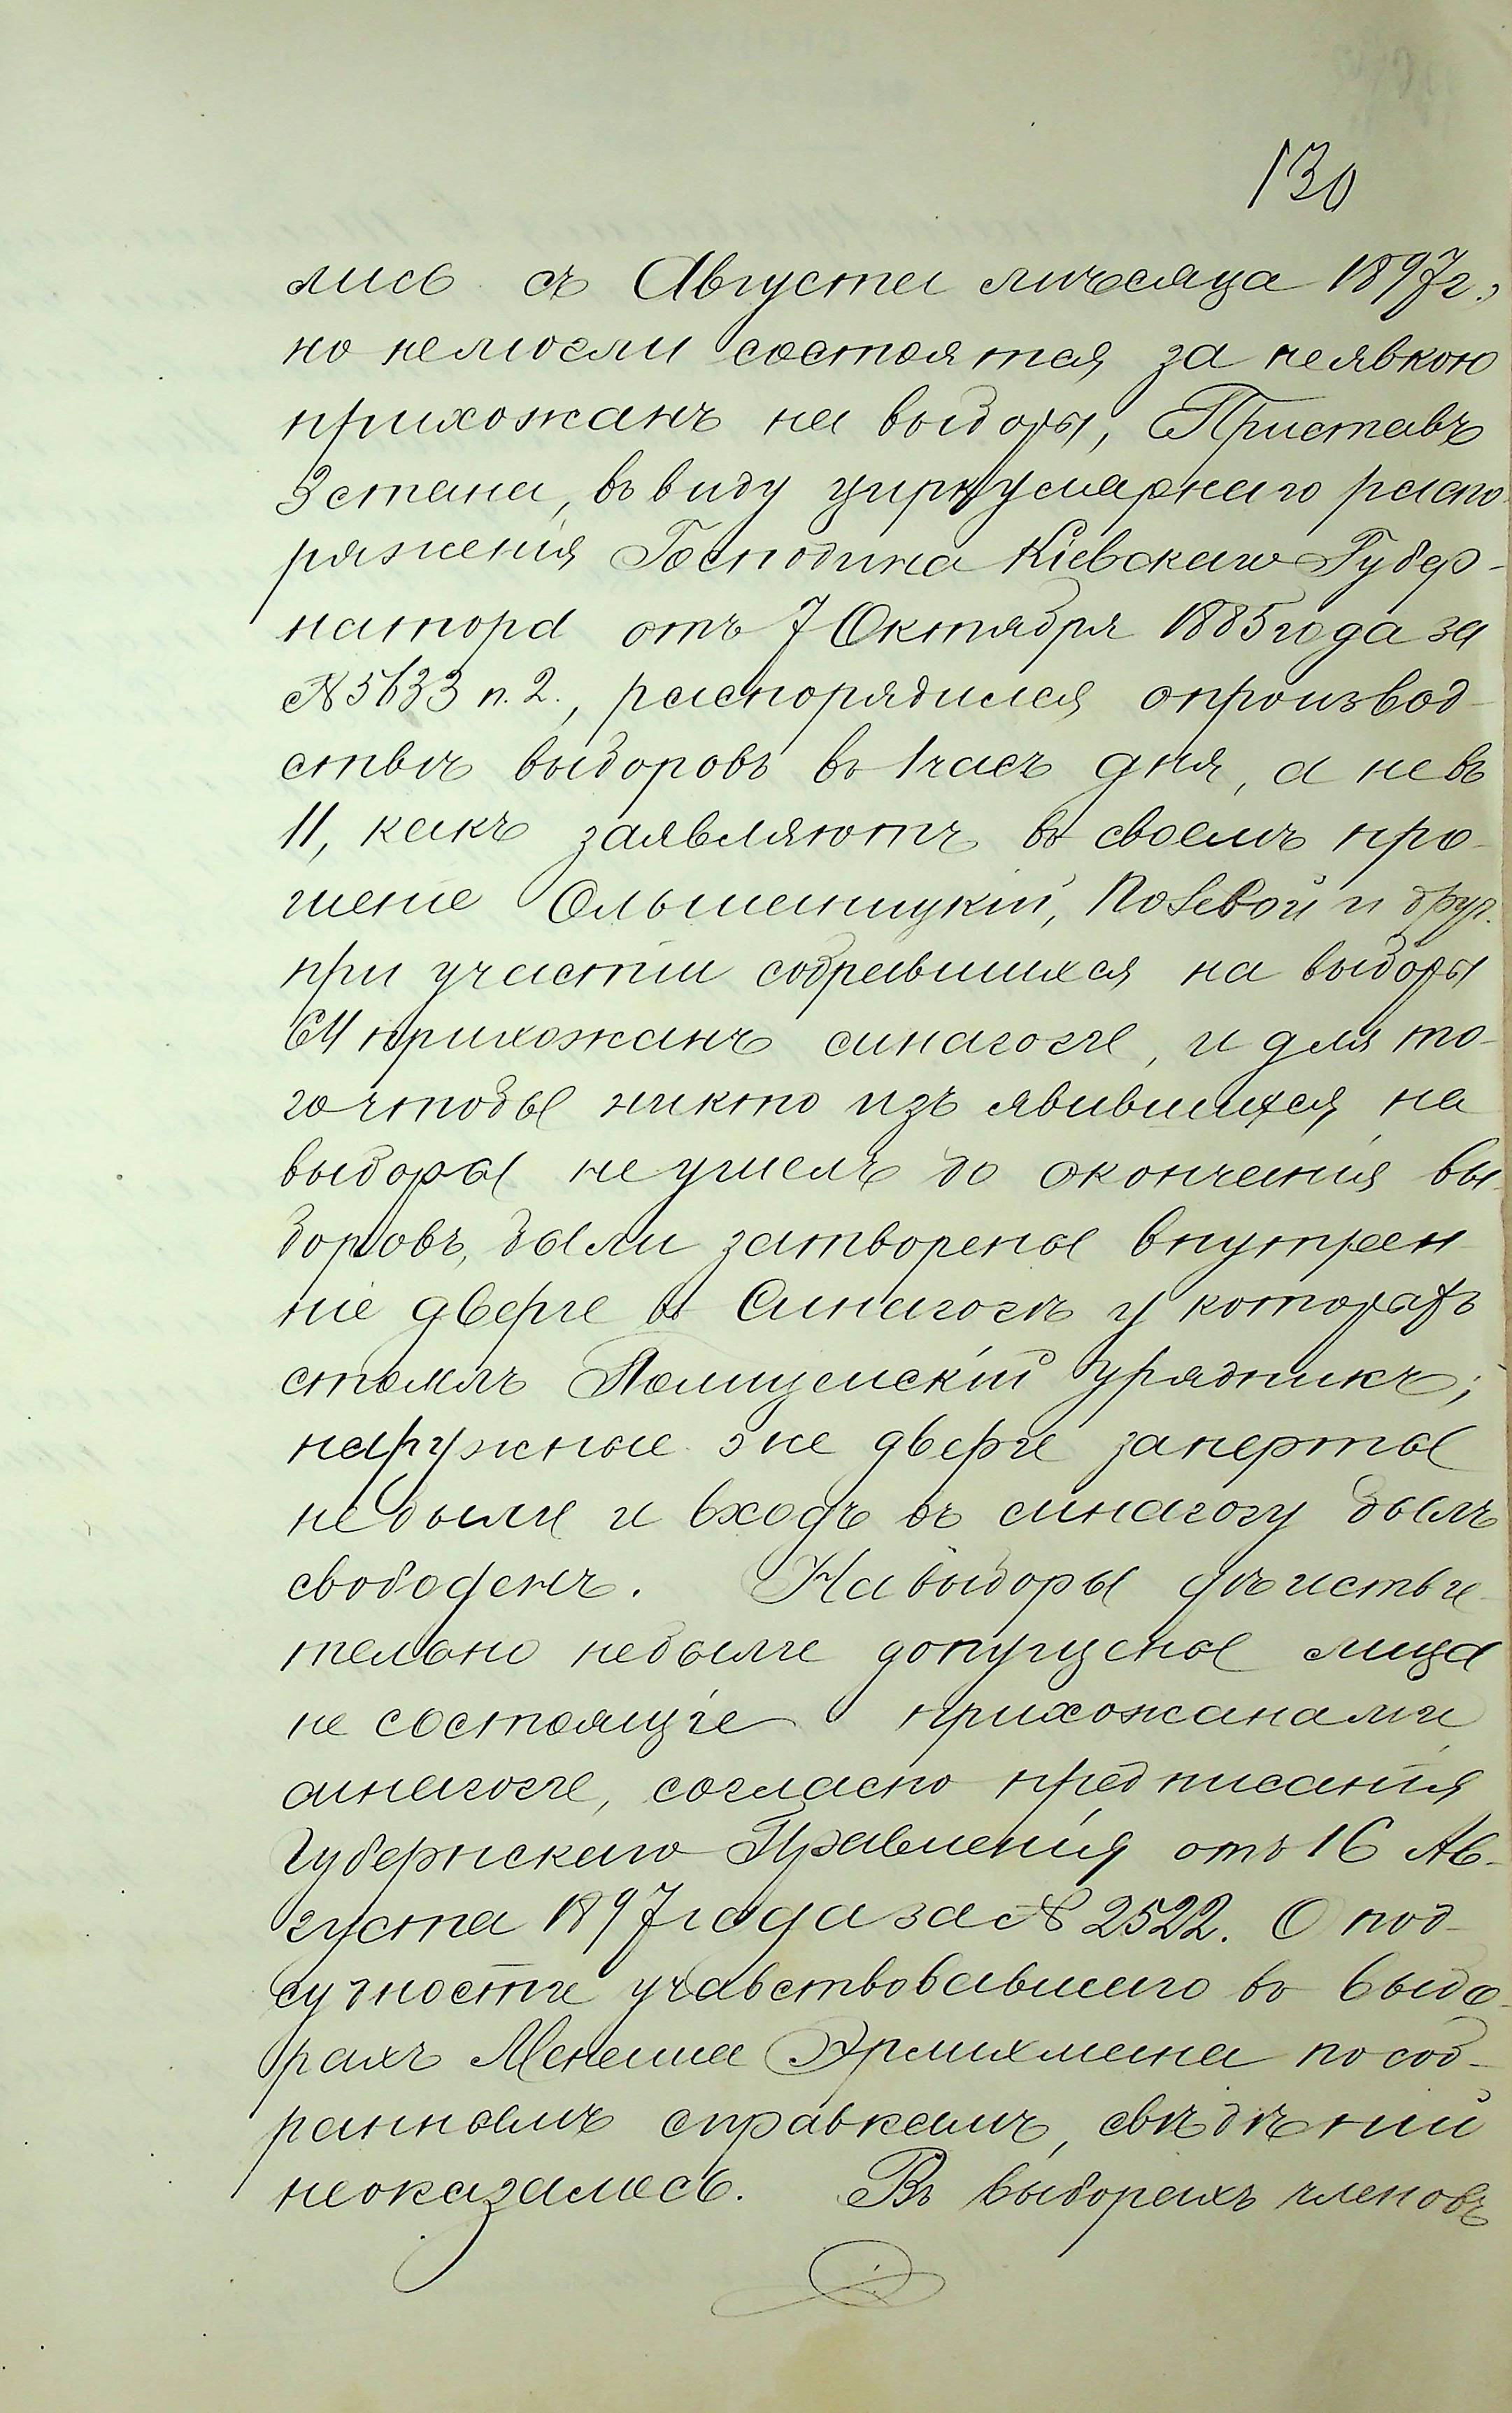 130
лись съ Августа мѣсяца 1897г.,
но немогли состоятся за неявкою
прихожанъ на выборы, Приставъ
3 стана, въ виду циркулярнаго распо-
ряженія Господина Кіевскаго Губер-
натора отъ 7 Октября 1885 года за
№ 5633 п. 2., распорядился опроизвод-
ствѣ выборовъ въ 1 часъ дня, а не въ
11, какъ заявляютъ въ своемъ про-
шеніе Ольшаницкій, и друг.
при участіи собравшихся на выборы
64 прихожанъ синагоги, и для то-
го чтобы никто изъ явившихся на
выборы не ушелъ до окончанія вы-
боровъ, были затворены внутрен-
ніе двери въ Синагогѣ у которыхъ
стоялъ Полицейскій урядникъ;
наружные же двери заперты
небыли и входъ въ синагогу былъ
свободенъ. На выборы дѣистви-
тельно небыли допущены лица
не состоящіе прихожанами
синагоги, согласно предписанія
Губернскаго Правленія отъ 16 Ав-
густа 1897 года за № 2522. О под-
судности учавствовавшаго въ выбо-
рахъ Менаша по соб-
раннымъ справкамъ, свѣдѣній
неоказалось. Въ выборахъ членовъ